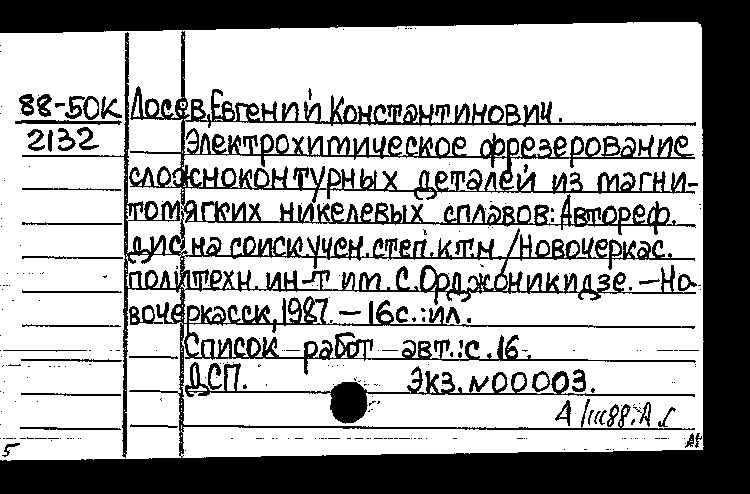 88-50К Лосев, Евгений Константинович.
2132 Электрохимическое фрезерование
сложноконтурных деталей из магни-
томягких никелевых сплавов: Автореф.
дис. на соиск. учен. степ. к.т.н / Новочеркас.
политехн. ин-т им. С. Орджоникидзе. — Но-
вочеркасск, 1987. — 16с.: ил.
Список работ авт.: с. 16.
ДСП. Экз. №00003.
5